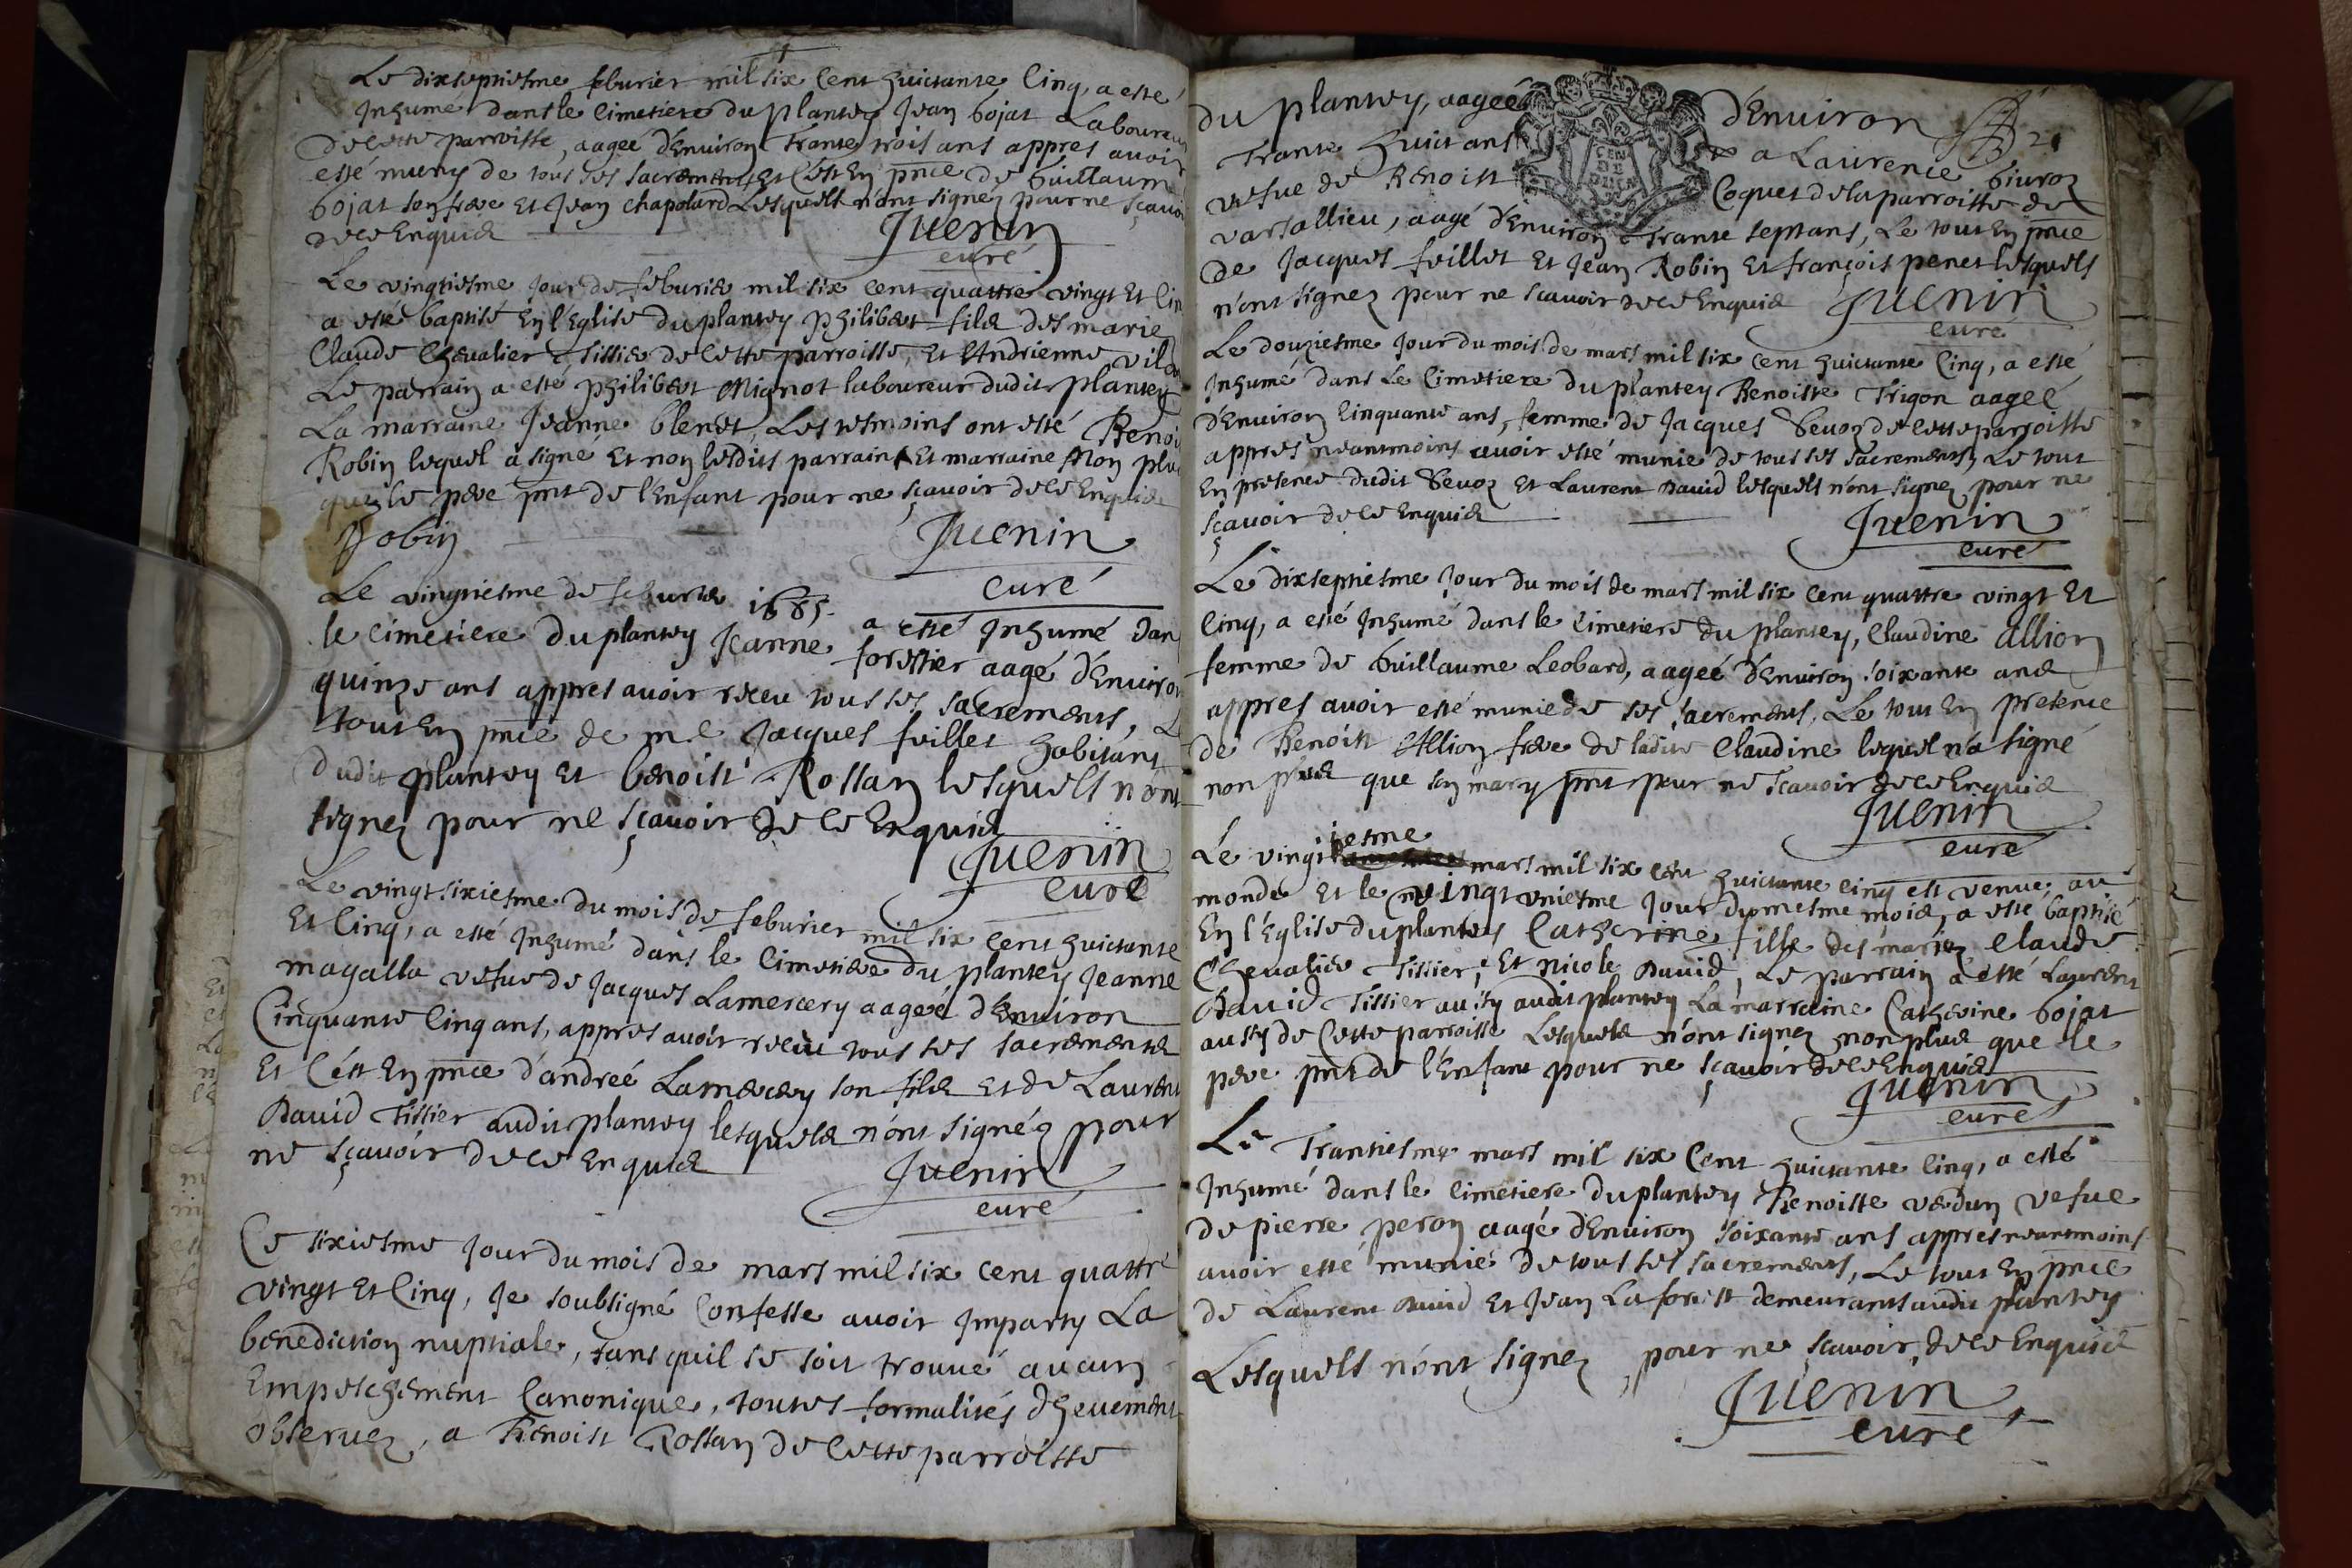 Le dixseptiesme feburier mil six Cent huictante Cinq, a esté
Inhumé dans le Cimetiere du plantey Jean bojat Laboureur
de cette parroisse, aageé d'Enuiron Trante trois ans appres auoir
esté muny de tous ses sacrements Et C'est En pnce de Guillaume
bojat son frere Et Jean chapolard Lesquels n'ont signez pour ne sçauoir
de ce Enquis
Juenin
curé
Le vingtiesme Jour de feburier mil six cent quattre vingt Et Cin
a esté baptisé En l'Eglise du plantey philibert fils des marie
Claude Cheualier Tissier de Cette parroisse, Et Andrienne
Le parrain a esté philibert Mignot laboureur dudit plantey
La marraine Jeanne blenet, Les tesmoins ont esté Benoi
Robin lequel a signé Et non lesdits parrain Et marraine Non plus
que le pere pnt de l'Enfant pour ne sçauoir de ce Enquis
Robin
Juenin
curé
Le vingtiesme de feburier 1685. a esté Inhumé dan
le cimetiere du plantey Jeanne forestier aagé d'Enuiron
quinze ans appres auoir receu tous ses sacrements, L
tout En pnce de me Jacques feillet habitant
dudit plantey Et benoist Rossan lesquels n'ont
signez pour ne sçauoir de ce Enquis
Juenin
curé
Le vingtsixiesme du mois de feburier mil six cent huictante
Et Cinq, a esté Inhumé dans le Cimetiere du plantey Jeanne
magalla vefue de Jacques Lamercery aageé d'Enuiron
Cinquante Cinq ans, appres auoir receu tous ses sacrements
Et C'est En pnce d'andreé Lamercery son fils Et de Laurent
Dauid Tissier audit plantey lesquels n'ont signéz pour
ne sçauoir de ce Enquis
Juenin
curé
Ce sixiesme Jour du mois de mars mil six cent quattre
vingt Et Cinq, Je soubsigné Confesse auoir Imparty La
benediction nuptiale, sans quil se soit trouué aucun
Empeschement Canonique, toutes formalités dheuement
obseruez, a Benoist Rossan de Cette parroisse
du plantey, aageé d'Enuiron
Trante huict ans a Laurence
vefue de Benoist Coquet de la parroisse de
varsallieu, aagé d'Enuiron Trante sept ans, Le tout En pnce
de Jacques feillet Et Jean Robin Et françois penet lesquels
n'ont signez pour ne sçauoir de ce Enquis
Juenin
curé
Le douziesme Jour du mois de mars mil six cent huictante Cinq, a esté
Inhumé dans Le Cimetiere du plantey Benoiste Trigon aageé
d'Enuiron Cinquante ans, femme de Jacques Seuoz de Cette parroisse
appres neantmoins auoir esté munie de tous ses sacrements, Le tout
En presence dudit Seuoz Et Laurent Dauid lesquels n'ont signez pour ne
sçauoir de ce Enquis
Juenin
curé
Le dixseptiesme Jour du mois de mars mil six Cent quattre vingt Et
Cinq, a esté Inhumé dans le Cimetiere du plantey, Claudine Allion
femme de Guillaume Leobard, aageé d'Enuiron soixante ans
appres auoir esté munie de ses sacrements, Le tout En presence
de Benoist Allion frere de ladite Claudine lequel n'a signé
non plus que son mary pnt pour ne sçauoir de ce Enquis
Juenin
curé
Le vingtiesme mars mil six cent huictante cinq est venue au
monde Et le vingt vniesme Jour du mesme mois, a esté baptisé
En l'Eglise du plantey Catherine fille des mariez Claude
Cheualier Tissier, Et Nicole Dauid, Le parrain a esté Laurent
Dauid Tissier aussy audit plantey La marraine Catherine bojat
aussy de Cette parroisse Lesquels n'ont signez non plus que le
pere pnt de l'Enfant pour ne sçauoir de ce Enquis
Juenin
curé
Le Trantiesme mars mil six Cent huictante Cinq, a esté
Inhumé dans le Cimetiere du plantey Benoiste verdun vefue
de pierre peron aagé d'Enuiron soixante ans appres neantmoins
auoir esté munie de tous ses sacrements, Le tout En pnce
de Laurent Dauid Et Jean Laforest demeurants audit plantey
Lesquels n'ont signez pour ne sçauoir, de ce Enquis
Juenin
curé